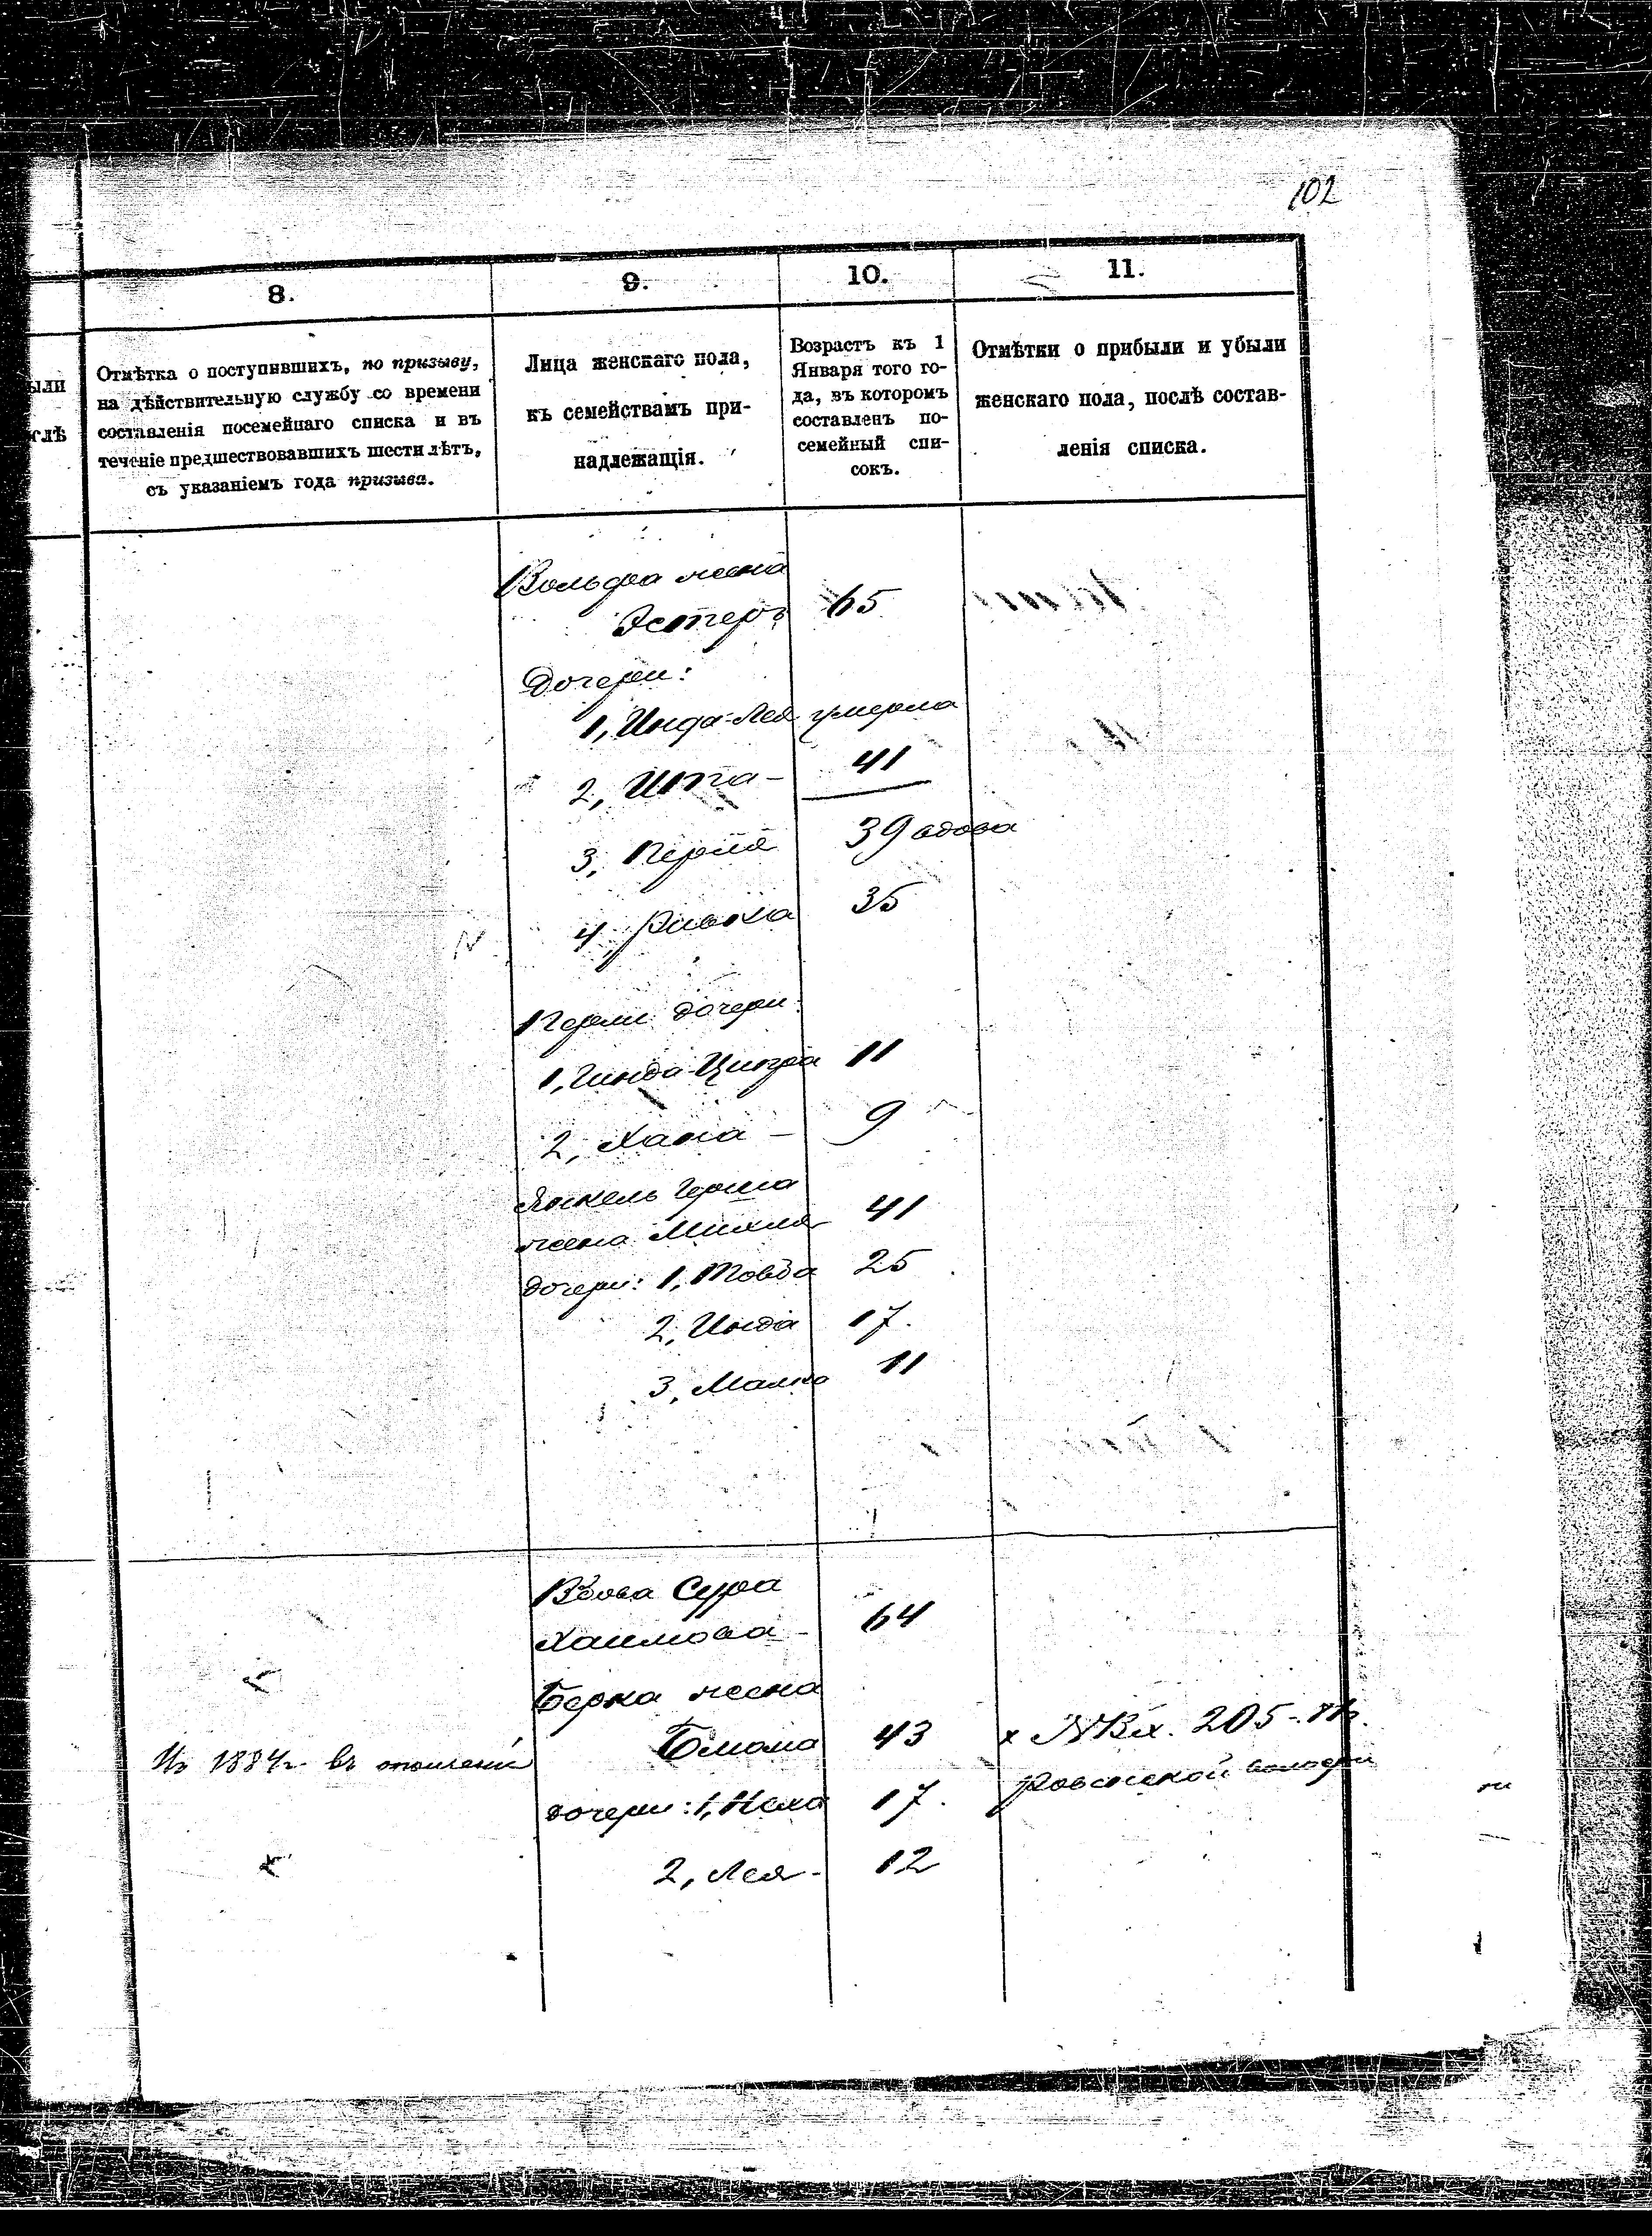 102
8.
9.
10.
11.
ыли
слѣ
Отмѣтка о поступившихъ, по призыву,
на дѣйствительную службу со времени
составленія посемейнаго списка и въ
теченіе предшествовавшихъ шести лѣтъ,
съ указаніемъ года призыва.
Лица женскаго пола,
къ семействамъ при-
надлежащія.
Возрастъ къ 1
Января того го-
да, въ которомъ
составленъ по-
семейный спи-
сокъ.
Отмѣтки о прибыли и убыли
женскаго пола, послѣ состав-
ленія списка.
Вольфа жена
Эстеръ 65
Дочери:
1, Инда-Лея умерла
2, Ита - 41
3, Перля 39 вдова
4, Ривка 35
Перли дочери:
1, Гинда-Ципра 11
2, Хана - 9
Янкель Герша
жена Михля 41
дочери: 1, Товба 25
2, Инда 17.
3, Малка 11
Вдова Сура
Хаимова - 64
Берка жена
Блюма 43 х №Вх. 205-
Из 1884г. въ
дочери: 1, Неха 17.
2, Лея - 12